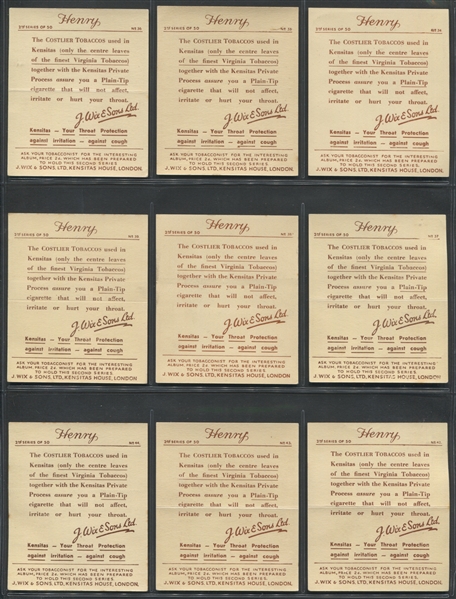 Henry
2ND SERIES OF 50
The COSTLIER TOBACCOS used in
Kensitas (only the centre leaves
of the finest Virginia Tobaccos)
together with the Kensitas Private
Process assure you a Plain-Tip
cigarette that will not affect,
irritate or hurt your throat.
J. Wix & Sons Ltd.
Kensitas — Your Throat Protection
against irritation — against cough
ASK YOUR TOBACCONIST FOR THE INTERESTING
ALBUM, PRICE 2d. WHICH HAS BEEN PREPARED
TO HOLD THIS SECOND SERIES
J. WIX & SONS, LTD, KENSITAS HOUSE, LONDON.
Henry
2ND SERIES OF 50
The COSTLIER TOBACCOS used in
Kensitas (only the centre leaves
of the finest Virginia Tobaccos)
together with the Kensitas Private
Process assure you a Plain-Tip
cigarette that will not affect,
irritate or hurt your throat.
J. Wix & Sons Ltd.
Kensitas — Your Throat Protection
against irritation — against cough
ASK YOUR TOBACCONIST FOR THE INTERESTING
ALBUM, PRICE 2d. WHICH HAS BEEN PREPARED
TO HOLD THIS SECOND SERIES
J. WIX & SONS, LTD, KENSITAS HOUSE, LONDON.
Henry
2ND SERIES OF 50
The COSTLIER TOBACCOS used in
Kensitas (only the centre leaves
of the finest Virginia Tobaccos)
together with the Kensitas Private
Process assure you a Plain-Tip
cigarette that will not affect,
irritate or hurt your throat.
J. Wix & Sons Ltd.
Kensitas — Your Throat Protection
against irritation — against cough
ASK YOUR TOBACCONIST FOR THE INTERESTING
ALBUM, PRICE 2d. WHICH HAS BEEN PREPARED
TO HOLD THIS SECOND SERIES
J. WIX & SONS, LTD, KENSITAS HOUSE, LONDON.
Henry
2ND SERIES OF 50
The COSTLIER TOBACCOS used in
Kensitas (only the centre leaves
of the finest Virginia Tobaccos)
together with the Kensitas Private
Process assure you a Plain-Tip
cigarette that will not affect,
irritate or hurt your throat.
J. Wix & Sons Ltd.
Kensitas — Your Throat Protection
against irritation — against cough
ASK YOUR TOBACCONIST FOR THE INTERESTING
ALBUM, PRICE 2d. WHICH HAS BEEN PREPARED
TO HOLD THIS SECOND SERIES
J. WIX & SONS, LTD, KENSITAS HOUSE, LONDON.
Henry
2ND SERIES OF 50
The COSTLIER TOBACCOS used in
Kensitas (only the centre leaves
of the finest Virginia Tobaccos)
together with the Kensitas Private
Process assure you a Plain-Tip
cigarette that will not affect,
irritate or hurt your throat.
J. Wix & Sons Ltd.
Kensitas — Your Throat Protection
against irritation — against cough
ASK YOUR TOBACCONIST FOR THE INTERESTING
ALBUM, PRICE 2d. WHICH HAS BEEN PREPARED
TO HOLD THIS SECOND SERIES
J. WIX & SONS, LTD, KENSITAS HOUSE, LONDON.
Henry
2ND SERIES OF 50
The COSTLIER TOBACCOS used in
Kensitas (only the centre leaves
of the finest Virginia Tobaccos)
together with the Kensitas Private
Process assure you a Plain-Tip
cigarette that will not affect,
irritate or hurt your throat.
J. Wix & Sons Ltd.
Kensitas — Your Throat Protection
against irritation — against cough
ASK YOUR TOBACCONIST FOR THE INTERESTING
ALBUM, PRICE 2d. WHICH HAS BEEN PREPARED
TO HOLD THIS SECOND SERIES
J. WIX & SONS, LTD, KENSITAS HOUSE, LONDON.
Henry
2ND SERIES OF 50
The COSTLIER TOBACCOS used in
Kensitas (only the centre leaves
of the finest Virginia Tobaccos)
together with the Kensitas Private
Process assure you a Plain-Tip
cigarette that will not affect,
irritate or hurt your throat.
J. Wix & Sons Ltd.
Kensitas — Your Throat Protection
against irritation — against cough
ASK YOUR TOBACCONIST FOR THE INTERESTING
ALBUM, PRICE 2d. WHICH HAS BEEN PREPARED
TO HOLD THIS SECOND SERIES
J. WIX & SONS, LTD, KENSITAS HOUSE, LONDON.
Henry
2ND SERIES OF 50
The COSTLIER TOBACCOS used in
Kensitas (only the centre leaves
of the finest Virginia Tobaccos)
together with the Kensitas Private
Process assure you a Plain-Tip
cigarette that will not affect,
irritate or hurt your throat.
J. Wix & Sons Ltd.
Kensitas — Your Throat Protection
against irritation — against cough
ASK YOUR TOBACCONIST FOR THE INTERESTING
ALBUM, PRICE 2d. WHICH HAS BEEN PREPARED
TO HOLD THIS SECOND SERIES
J. WIX & SONS, LTD, KENSITAS HOUSE, LONDON.
Henry
2ND SERIES OF 50
The COSTLIER TOBACCOS used in
Kensitas (only the centre leaves
of the finest Virginia Tobaccos)
together with the Kensitas Private
Process assure you a Plain-Tip
cigarette that will not affect,
irritate or hurt your throat.
J. Wix & Sons Ltd.
Kensitas — Your Throat Protection
against irritation — against cough
ASK YOUR TOBACCONIST FOR THE INTERESTING
ALBUM, PRICE 2d. WHICH HAS BEEN PREPARED
TO HOLD THIS SECOND SERIES
J. WIX & SONS, LTD, KENSITAS HOUSE, LONDON.